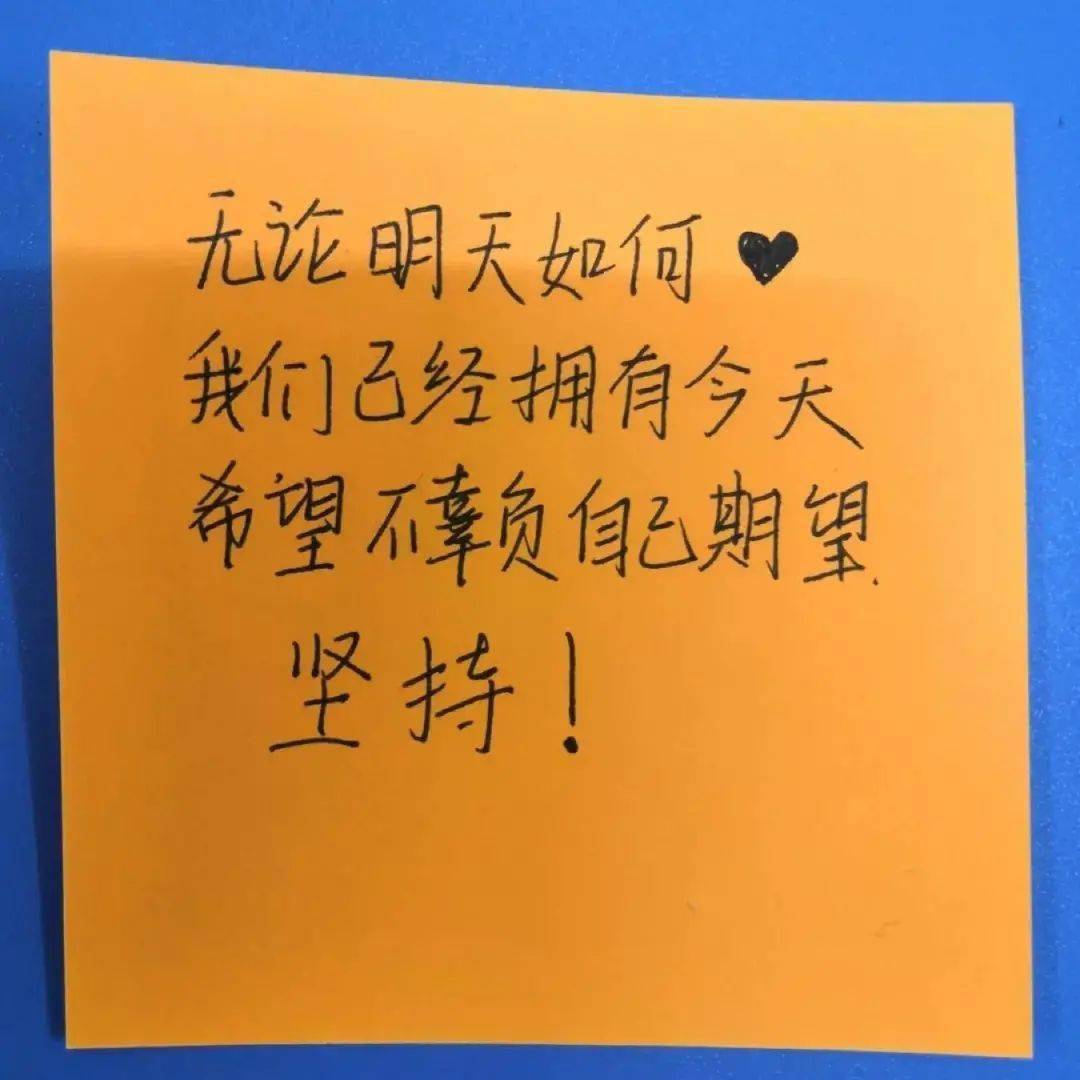 无论明天如何♥
我们已经拥有今天
希望不辜负自己期望.
坚持!